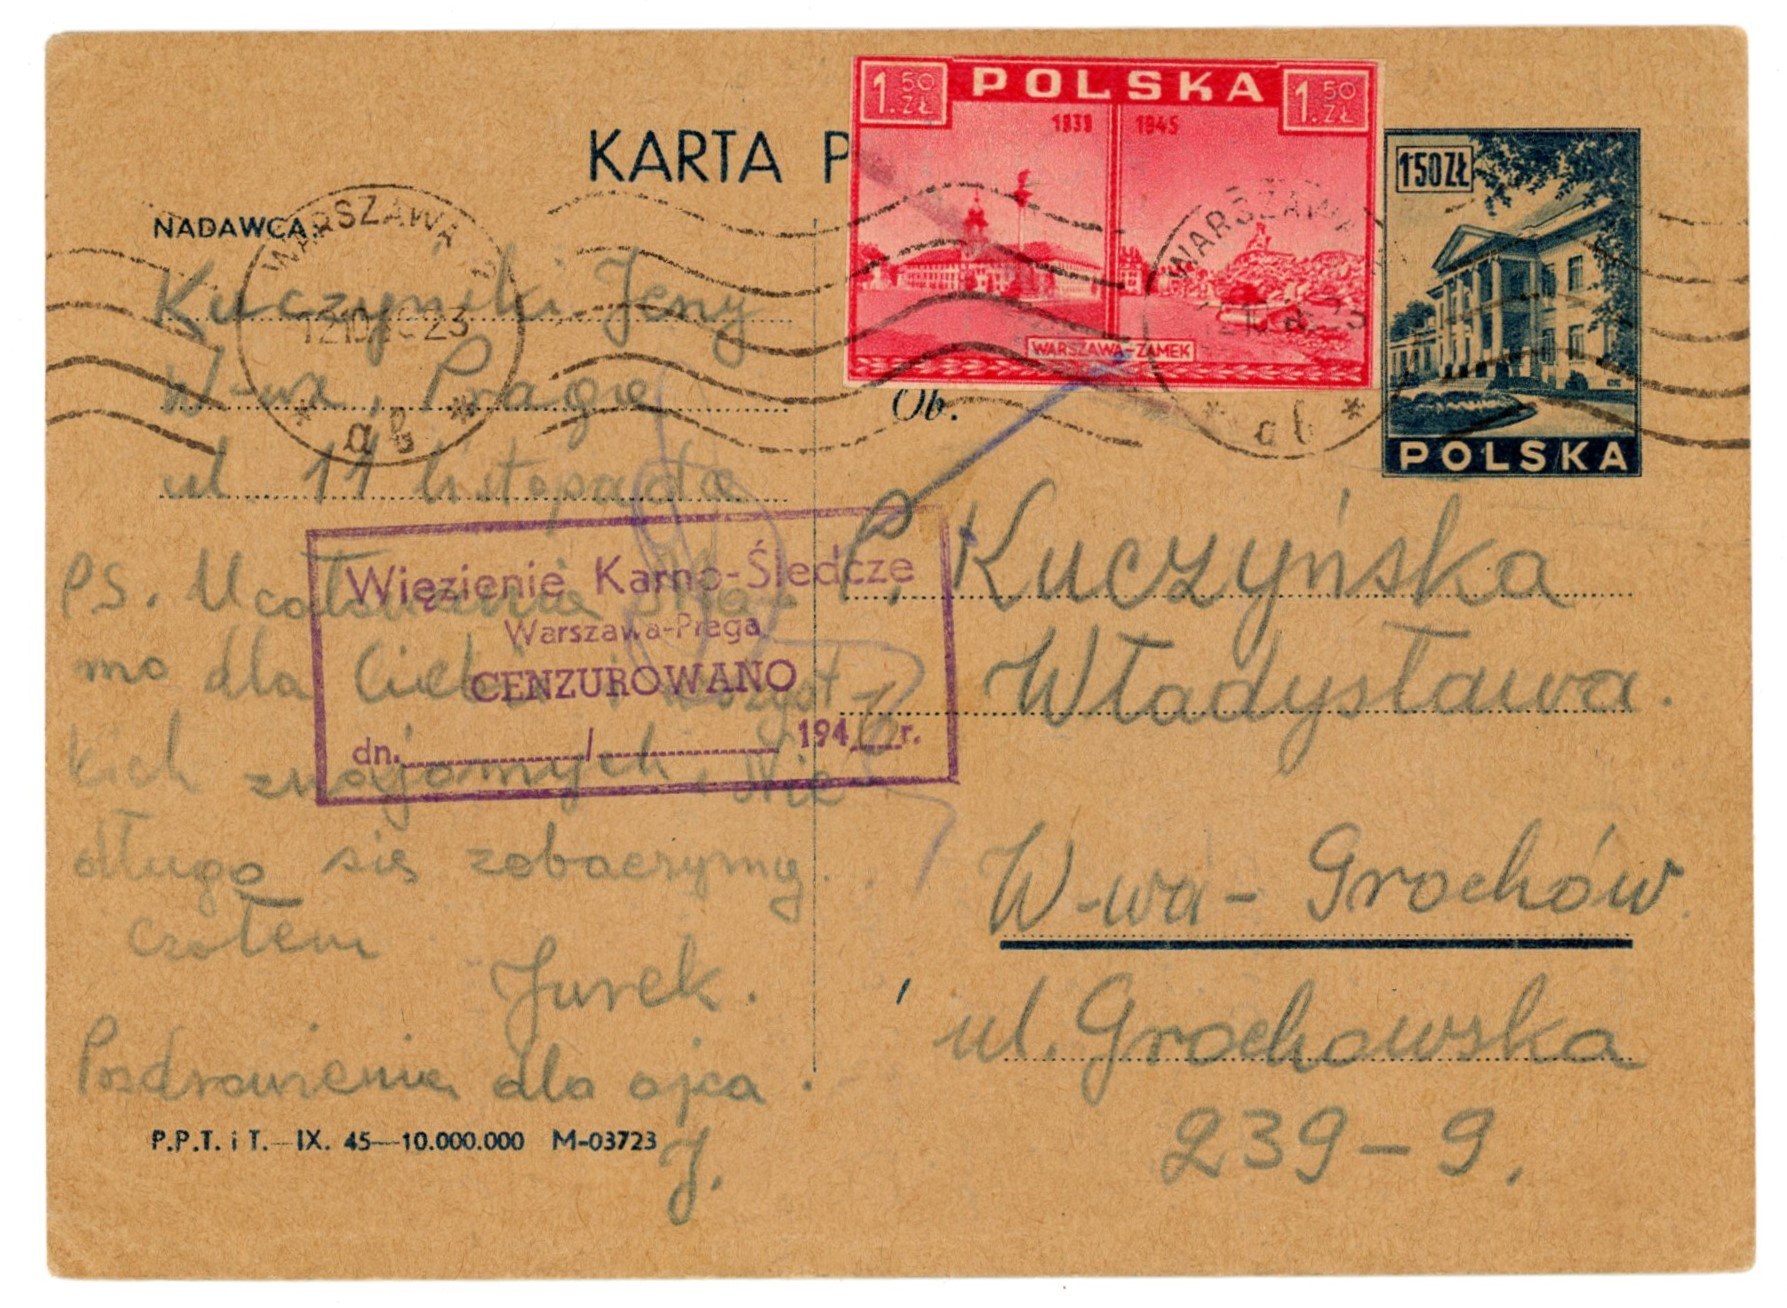 1.50 ZŁ POLSKA 1.50 ZŁ
1939 1945
WARSZAWA-ZAMEK
KARTA P
150 ZŁ
POLSKA
NADAWCA:
WARSZAWA
23
* a b *
WARSZAWA
23
* a b *
Kuczyński Jerzy
W-wa, Praga
ul 11 listopada
Więzienie Karno-Śledcze
Warszawa-Praga
CENZUROWANO
dn. / 194 r.
PS. Ucałowania dla Ma-
mo dla Ciebie i wszyst-
kich znajomych. Nie
długo się zobaczymy.
czołem
Jurek.
Pozdrowienia dla ojca.
J.
P.P.T. i T.—IX. 45—10.000.000 M-03723
Ob.
P. Kuczyńska
Władysława.
W-wa - Grochów.
ul. Grochowska
239 - 9.